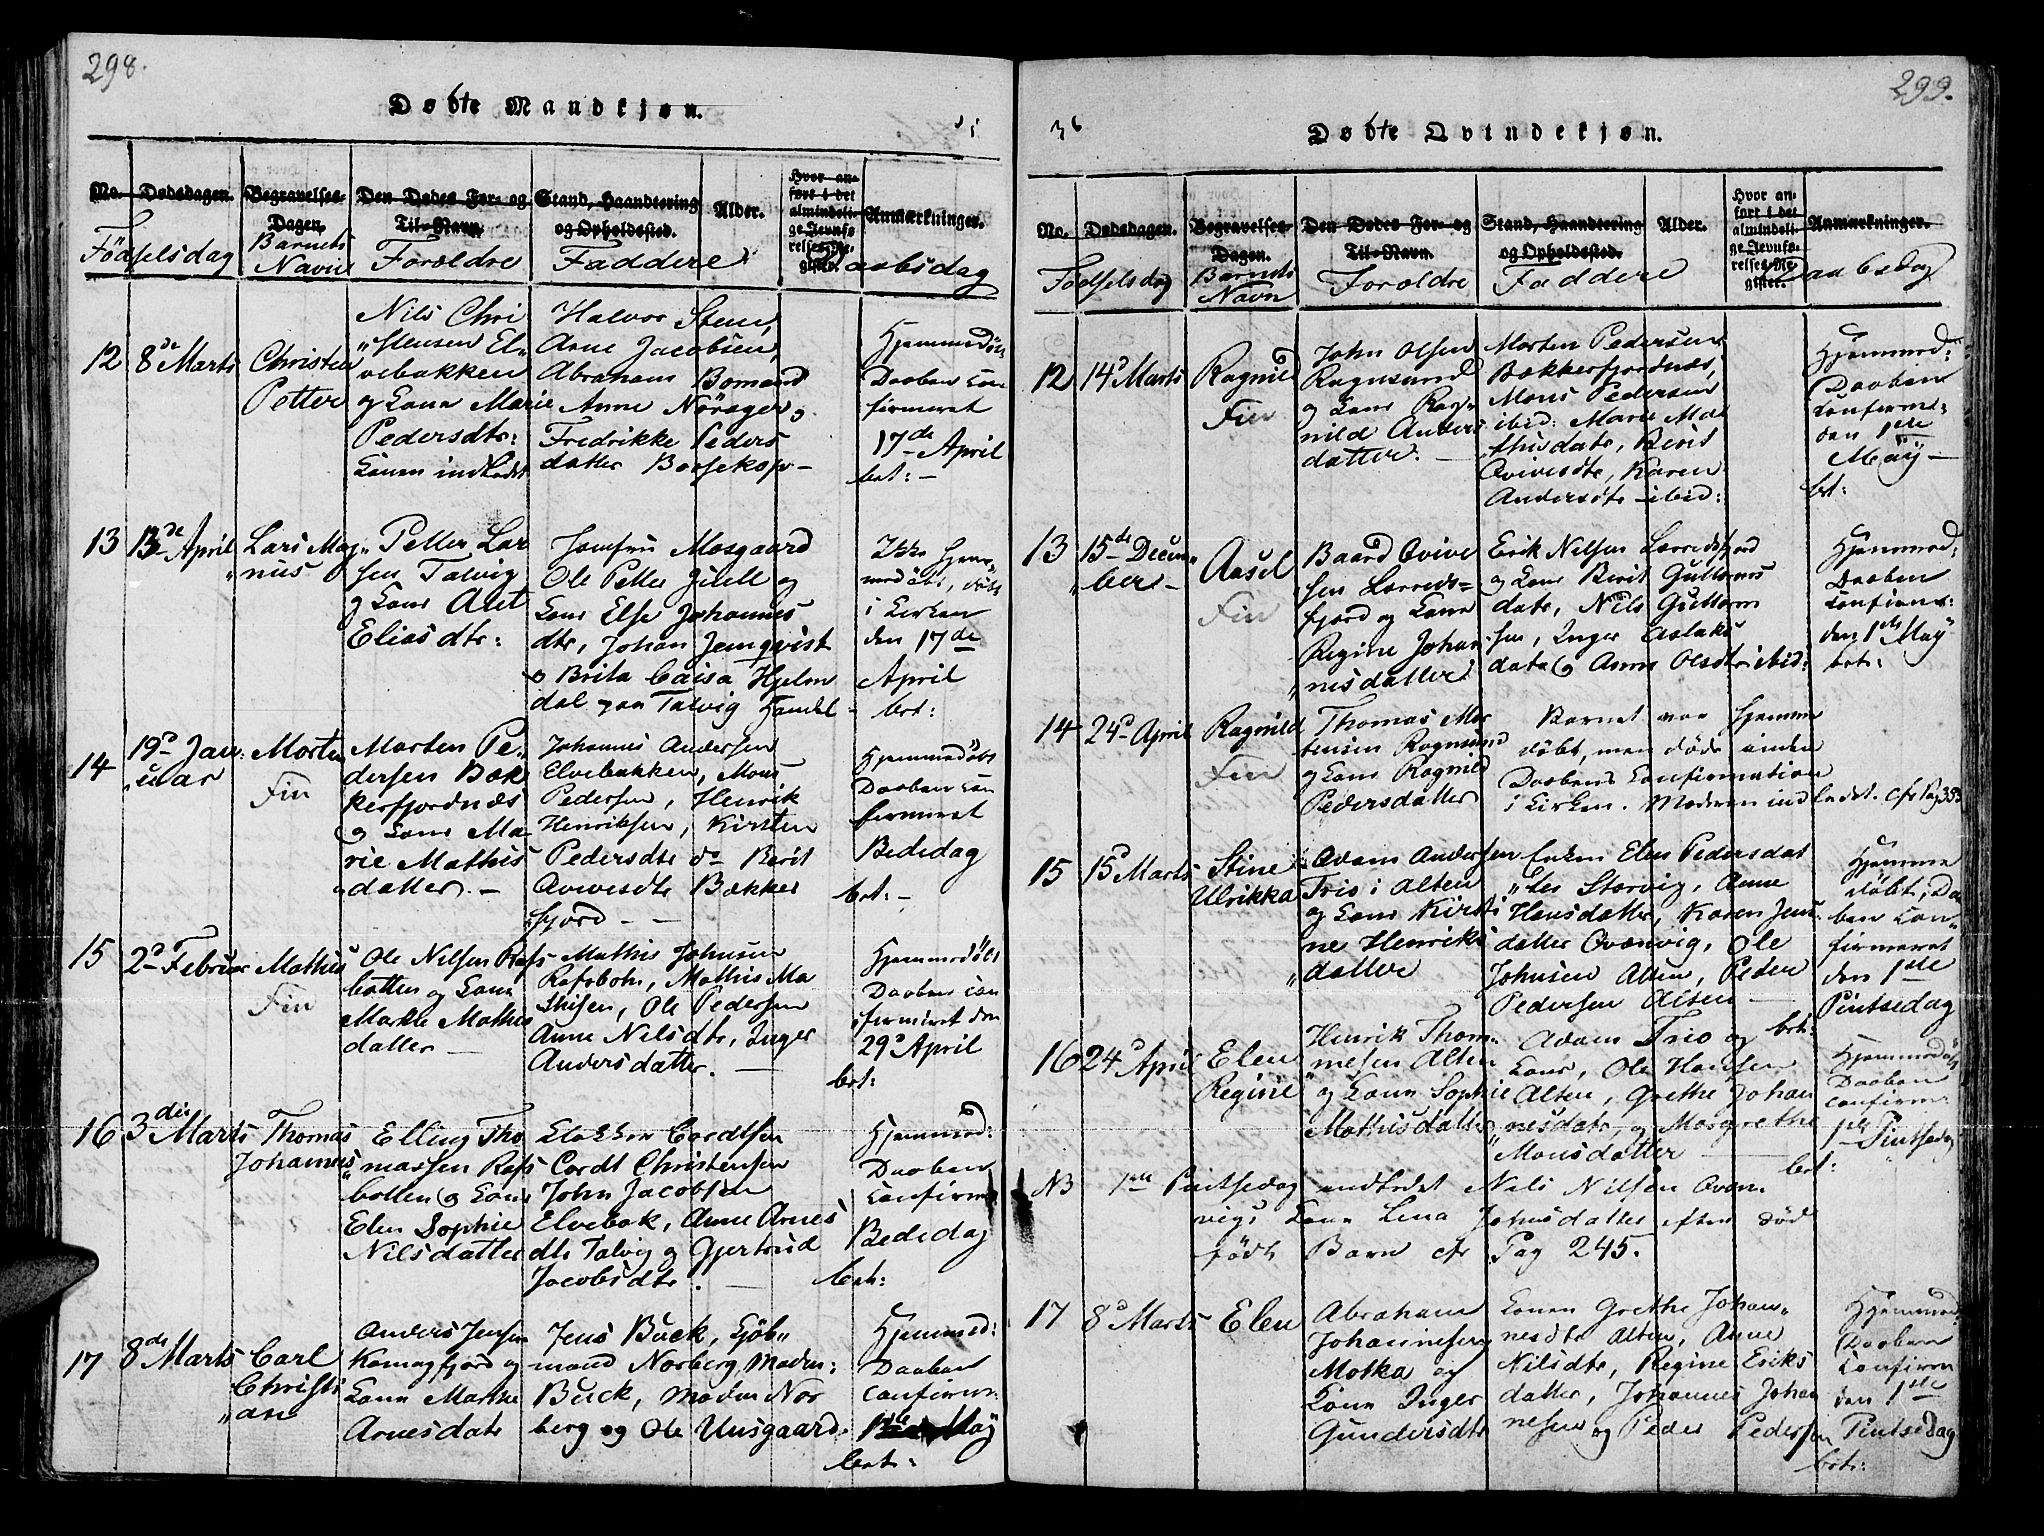 298.
Døbte Mandkjøn.
No. Dødsdagen. Begravelses-Dagen. Den Dødes For- og Til-Navn. Stand, Haandtering og Opholdssted. Alder. Hvor anført i det almindelige Jevnførelses-Register. Anmærkninger.
Födselsdag
Barnets Navn
Foreldre
Faddere
Daabsdag
12
8de Marts
Christen
Petter
Nils Chri
"stensen El"
vebakken
og Kone Marie
Pedersdtr:
Konen indledet
Halvor Steen,
Arne Jacobsen,
Abraham Bomand
Anne Nörager og
Fredrikke Peders
datter Bossekop -
Hjemmedöbt
Daaben con
firmeret
17de April
bet: -
13
13de April
Lars Mag"
"nus
Petter Lar
sen Talvig
og Kone Alet
Elias dtr:
Jomfru Mosgaard
Ole Petter Jilell og
Kone Else Johannes
dtr, Johan Jemqvist
o Brita Caisa Hjelm
dal paa Talvig Handel
Ikke hjem
medöbt, döbt
i Kirken
den 17de
April
bet:
14
19d Jan
"uar
Morten
Fin
Morten Pe"
dersen Bek
kerfjordnæs
og Kone Ma
rie Mathis
"datter. -
Johannes Andersen
Elvebakken, Mons
Pedersen, Henrik
Henriksen, Kirsten
Pedersdtr do Berit
Ovivesdtr Bekker
fjord - -
Hjemmedöbt
Daaben con
firmeret
Bededag
bet: -
15
2d Februar
Mathis
Fin
Ole Nilsen Rafs
botten og Kone
Marthe Mathis
datter -
Mathis Johnsen
Rafsbotn, Mathis Ma
thisen, Ole Pedersen
Anne Nilsdtr, Inger
Andersdatter. -
Hjemmedöbt
Daaben con
firmeret den
29d April
bet:
16
3die Marts
Thomas
Johannes
Elling Tho
massen Rafs
botten og Kone
Elen Sophie
Nilsdatter
Klokker Cordtsen
Cordt Christensen
John Jacobsen
Elvebak, Anne Arnes
dtr Talvig og Gjertrud
Jacobsdtr. -
Hjemmed:
Daaben
confirm
Bededag
bet:
17
8de Marts
Carl
Christi
"an
Anders Jensen
Komagfjord og
Kone Marthe
Arnesdatr
Jens Buck, Kjöb"
mand Norberg, Madm:
Buck, Madm Nor
berg og Ole Uusgaard.
Hjemmed:
Daaben
confirm:
1ste Maÿ
bet:
299.
Døbte Qvindekjøn.
No. Dødsdagen. Begravelses-Dagen. Den Dødes For- og Til-Navn. Stand, Haandtering og Opholdssted. Alder. Hvor anført i det almindelige Jevnførelses-Register. Anmærkninger.
Födselsdag
Barnets Navn
Foreldre
Faddere
Daabsdag
12
14d Marts
Ragnild
Fin
John Olsen
Rognsund
og Kone Rag"
nild Anders
datter. -
Morten Pedersen
Bekkerfjordnæs,
Mons Pedersen
ibid: Marie Ma
thisdatr, Berit
Ovivesdtr, Karen
Andersdtr ibid:
Hjemmed:
Daaben
confirme:
den 1ste
Maÿ -
bet:
13
15de Decem"
"ber -
Aasel
Fin
Baard Ovive
sen Lerreds=
fjord og Kone
Regine Johan
"nesdatter
Erik Nilsen Lerredsfjord
og Kone Berit Guttorms
datr, Nils Guttorm
sen, Inger Aslaks
datr og Anne Olsdtr ibid:
Hjemmed:
Daaben
confirm:
den 1ste May
bet:
14
24d April
Ragnild
Fin
Thomas Mor
tensen Rognsund
og Kone Ragnild
Pedersdatter
Barnet var hjemme
döbt, men döde inden
Daabens Confirmation
i Kirken. Moderen indledet. cfr Pag 353
15
15d Marts
Stine
Ulrikka
Adam Andersen
Trio i Alten
og Kone Kirsti
ne Henriks
"datter
Enken Elen Pedersdat
"ter Storvig, Anne
Hansdatter, Karen Jens
datter Qvænvig, Ole
Johnsen Alten, Peder
Pedersen Alten -
Hjemme
döbt, Da
ben con"
firmeret
den 1ste
Pintsedag
bet:
16
24d April
Elen
Regine
Henrik Thom"
mesen Alten
og Kone Sophie
Mathisdatter
Adam Trio og
Kone, Ole Hansen
Alten, Grethe Johan
nesdatr, og Margrethe
"Monsdatter
Hjemmedöbt
Daaben
confirm:
1ste Pintsedag
bet:
NB 1ste Pintsedag indledet Nils Nilsen Qvæn
vigs Kone Lena Johnsdatter efter död
födt Barn cfr Pag 245.
17
8d Marts
Elen
Abraham
Johannesen
Motka og
Kone Inger
Gundersdtr
Konen Grethe Johan"
nesdtr Alten, Anne
Nilsdtr, Regine Eriks
datter, Johannes Johan
nesen og Peder Pedersen
Hjemmed:
Daaben
confirm
den 1ste
Pintsedag
bet: